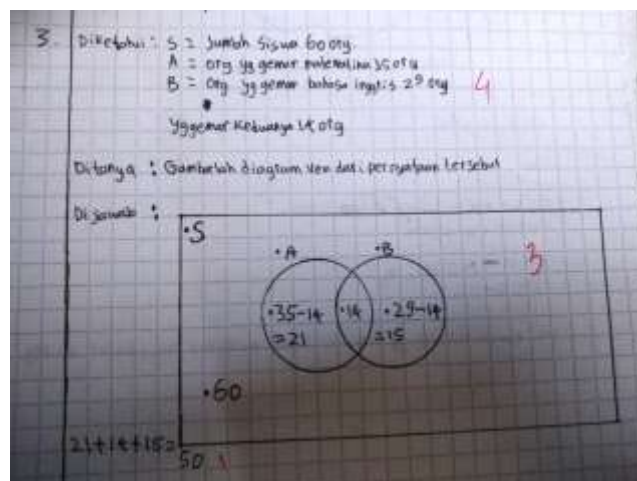 3. Diketahui : S = Jumlah Siswa 60 org.
A = org yg gemar matematika 35 org
B = org yg gemar bahasa inggris 29 org 4
Yg gemar keduanya 14 org
Ditanya : Gambarlah diagram Ven dari pernyataan tersebut
Dijawab :
•S
•A •B
- 3
•35-14 •14 •29-14
=21 =15
•60
21+14+15=
50